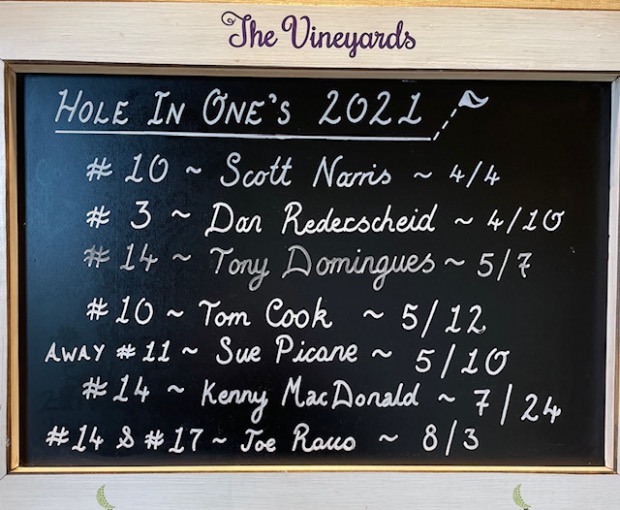 The Vineyards
HOLE IN ONE'S 2021
# 10 ~ Scott Narris ~ 4/4
# 3 ~ Dan Rederscheid ~ 4/10
# 14 ~ Tony Domingues ~ 5/7
# 10 ~ Tom Cook ~ 5/12
AWAY # 11 ~ Sue Picane ~ 5/10
# 14 ~ Kenny MacDonald ~ 7/24
# 14 & # 17 ~ Joe Rauo ~ 8/3